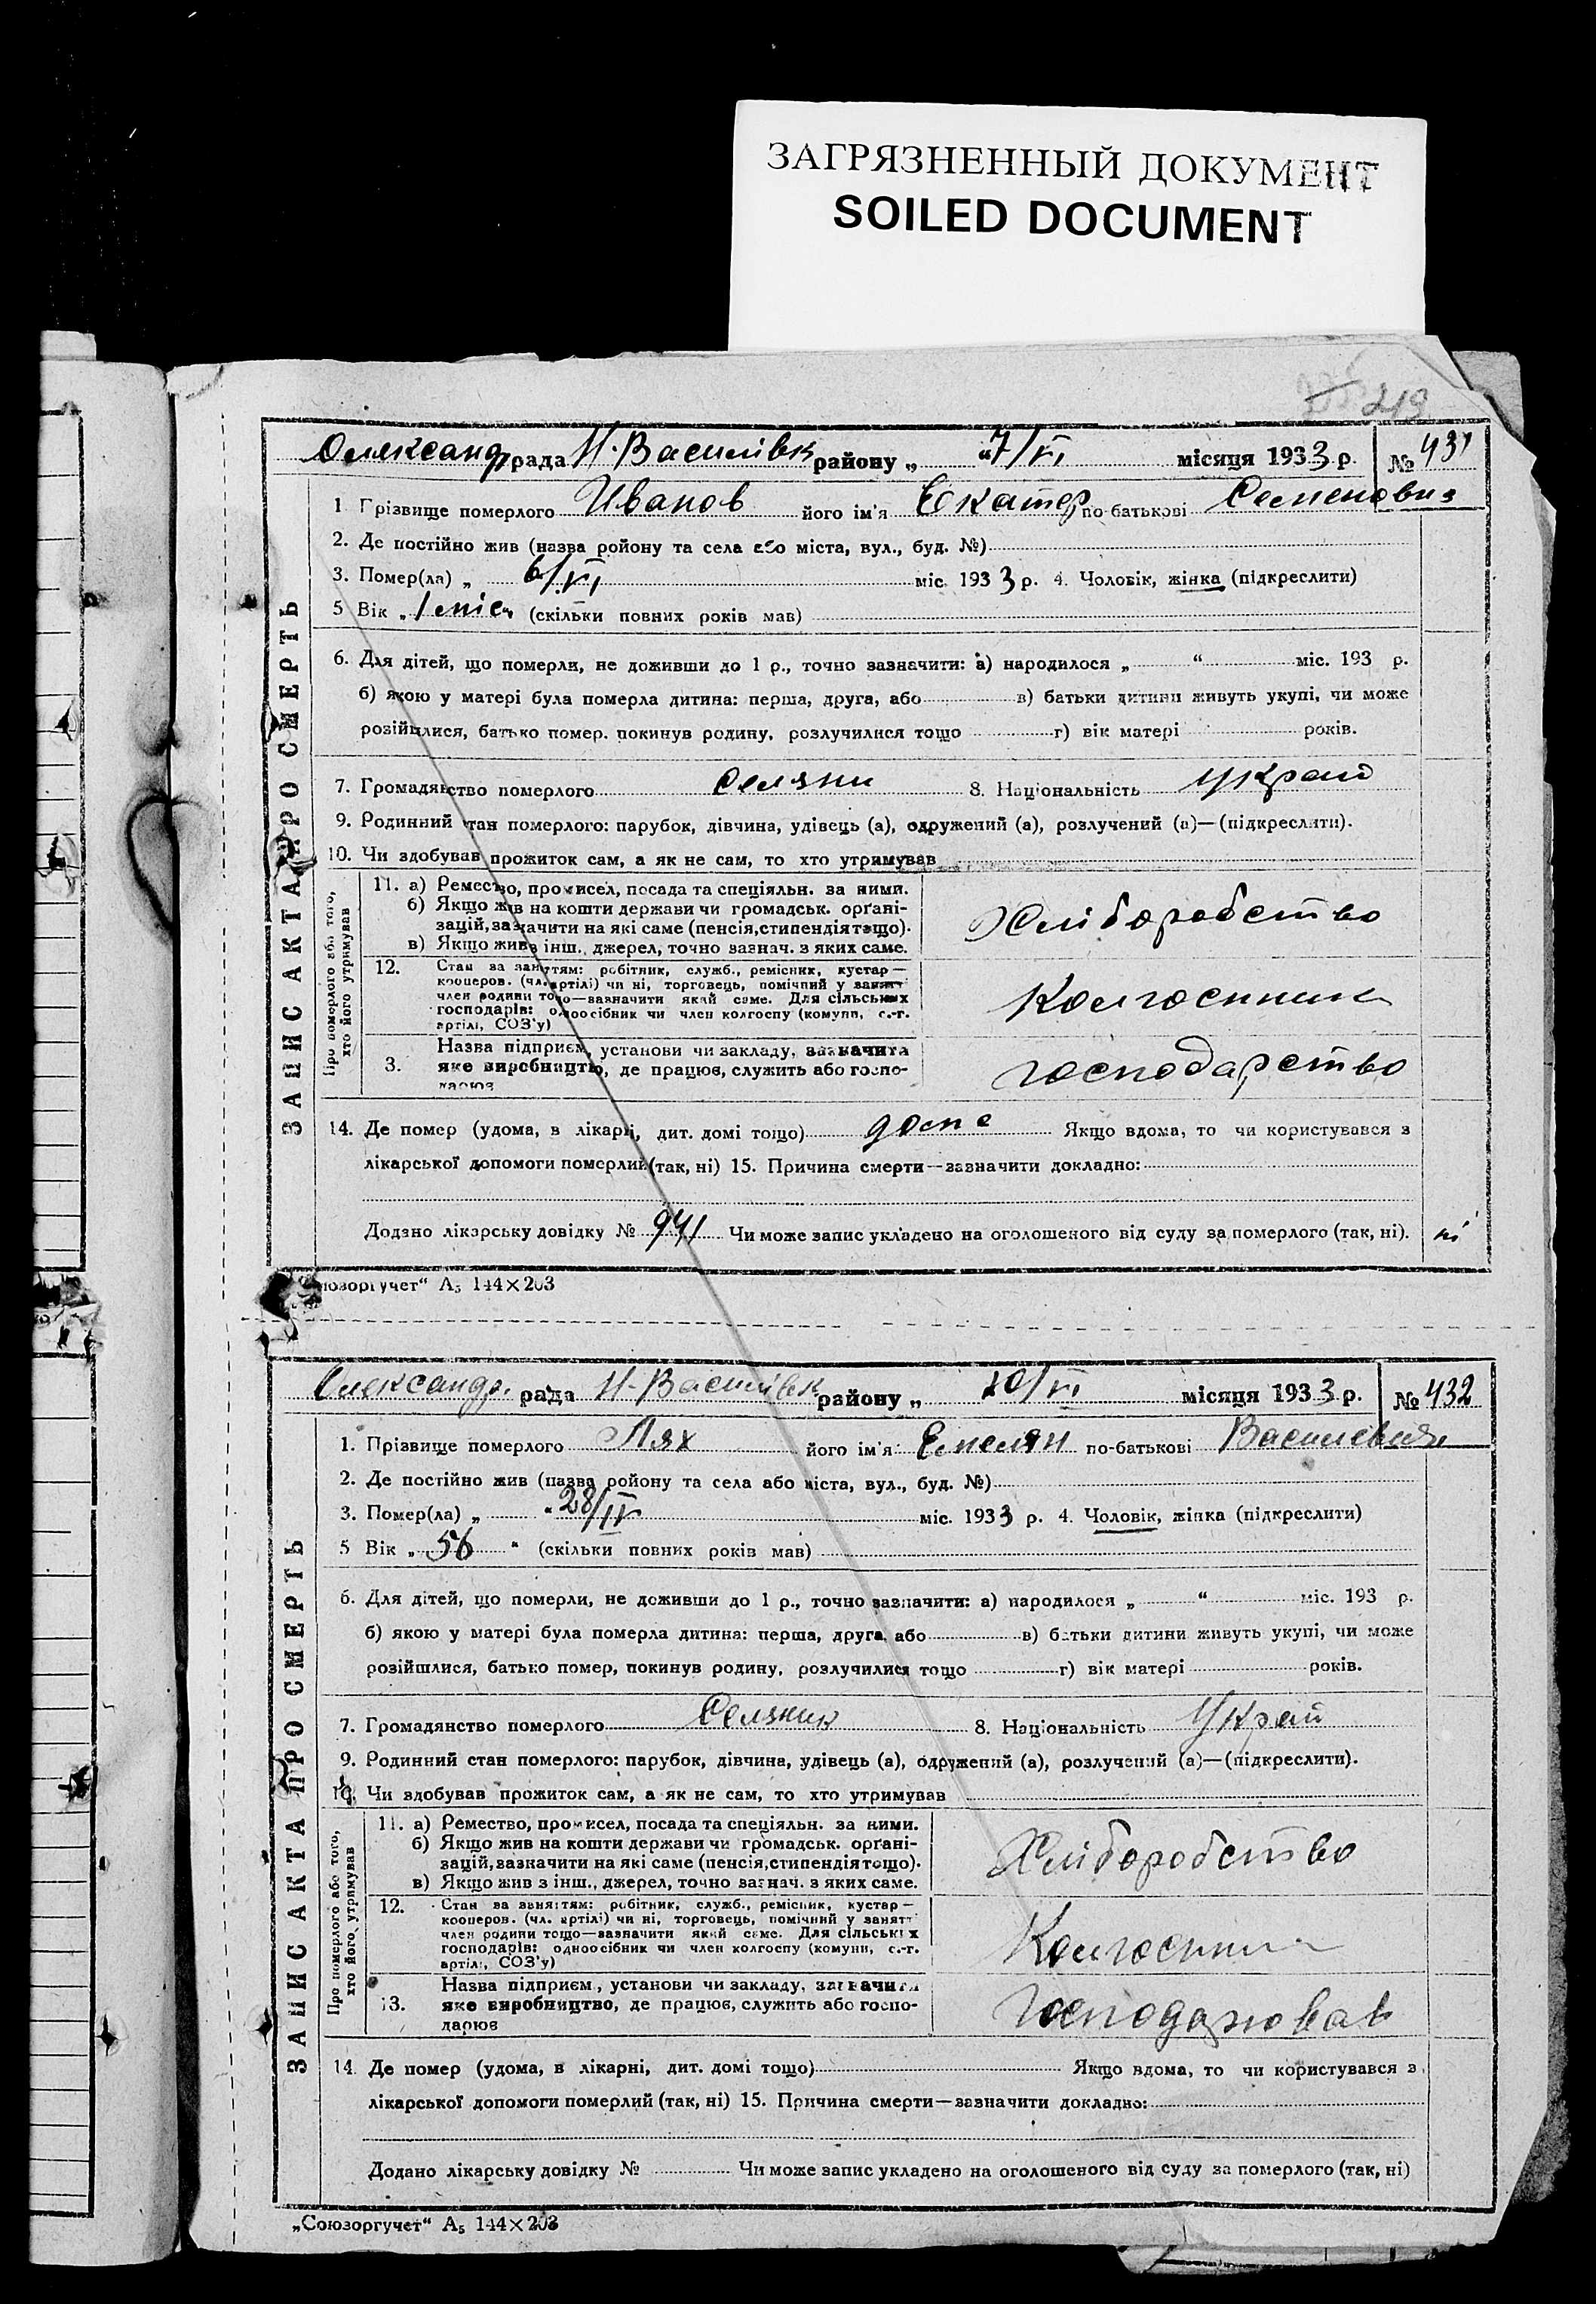 ЗАГРЯЗНЕННЫЙ ДОКУМЕНТ
SOILED DOCUMENT
219
Олександр рада Н-Василівк району „ “ 7/VI місяця 1933 р. № 431
ЗАПИС АКТА ПРО СМЕРТЬ
1 Прізвище померлого Иванов його ім'я Екатер по-батькові Семеновна
2. Де постійно жив (назва ройону та села або міста, вул., буд. №)
3. Помер(ла) „ 6/VI міс. 1933 р. 4. Чоловік, жінка (підкреслити)
5 Вік „ (скільки повних років мав)
6. Для дітей, що померли, не доживши до 1 р., точно зазначити: а) народилося „ “ міс. 193 р.
б) якою у матері була померла дитина: перша, друга, або в) батьки дитини живуть укупі, чи може
розійшлися, батько помер. покинув родину, розлучилися тощо г) вік матері років.
7. Громадянство померлого Селянин 8. Національність Украй
9. Родинний стан померлого: парубок, дівчина, удівець (а), одружений (а), розлучений (а)—(підкреслити).
10. Чи здобував прожиток сам, а як не сам, то хто утримував
Про померлого або того, хто його утримував
11. а) Ремество, промисел, посада та спеціяльн. за ними.
б) Якщо жив на кошти держави чи громадськ. орґані-
зацій, зазначити на які саме (пенсія, стипендія тощо).
в) Якщо жив з інш. джерел, точно зазнач. з яких саме.
Хліборобство
12. Стан за заняттям: робітник, служб., ремісник, кустар—
кооперов. (чл. артілі) чи ні, торговець, помічний у занятт
член родини тощо—зазначити який саме. Для сільських
господарів: одноосібник чи член колгоспу (комуни, с.-г.
артілі, СОЗ'у)
Колгоспник
3. Назва підприєм, установи чи закладу, зазначити
яке виробництво, де працює, служить або госпо-
дарює
господарство
14. Де помер (удома, в лікарні, дит. домі тощо) дома Якщо вдома, то чи користувався з
лікарської допомоги померлий (так, ні) 15. Причина смерти—зазначити докладно:
Додано лікарську довідку № 941 Чи може запис укладено на оголошеного від суду за померлого (так, ні). ні
юзоргучет“ А5 144×203
Олександр. рада Н-Василівк району „ 10/VI місяця 1933 р. № 432
ЗАПИС АКТА ПРО СМЕРТЬ
1. Прізвище померлого Лях його ім'я Емелян по-батькові Василевич
2. Де постійно жив (назва ройону та села або міста, вул., буд. №)
3. Помер(ла) „ “ 28/IV міс. 1933 р. 4. Чоловік, жінка (підкреслити)
5 Вік „ 56 “ (скільки повних років мав)
6. Для дітей, що померли, не доживши до 1 р., точно зазначити: а) народилося „ “ міс. 193 р.
б) якою у матері була померла дитина: перша, друга, або в) батьки дитини живуть укупі, чи може
розійшлися, батько помер, покинув родину, розлучилися тощо г) вік матері років.
7. Громадянство померлого Селянин 8. Національність Украй
9. Родинний стан померлого: парубок, дівчина, удівець (а), одружений (а), розлучений (а)—(підкреслити).
10. Чи здобував прожиток сам, а як не сам, то хто утримував
Про померлого або того, хто його утримував
11. а) Ремество, промисел, посада та спеціяльн. за ними.
б) Якщо жив на кошти держави чи громадськ. орґані-
зацій, зазначити на які саме (пенсія, стипендія тощо).
в) Якщо жив з інш., джерел, точно зазнач. з яких саме.
Хліборобство
12. Стан за заняттям: робітник, служб., ремісник, кустар—
кооперов. (чл. артілі) чи ні, торговець, помічний у занятт
член родини тощо—зазначити який саме. Для сільських
господарів: одноосібник чи член колгоспу (комуни, с.-г.
артілі, СОЗ'у)
Колгоспник
13. Назва підприєм, установи чи закладу, зазначити
яке виробництво, де працює, служить або госпо-
дарює
Господарював
14. Де помер (удома, в лікарні, дит. домі тощо) Якщо вдома, то чи користувався з
лікарської допомоги померлий (так, ні) 15. Причина смерти—зазначити докладно:
Додано лікарську довідку № Чи може запис укладено на оголошеного від суду за померлого (так, ні)
„Союзоргучет“ А5 144×203